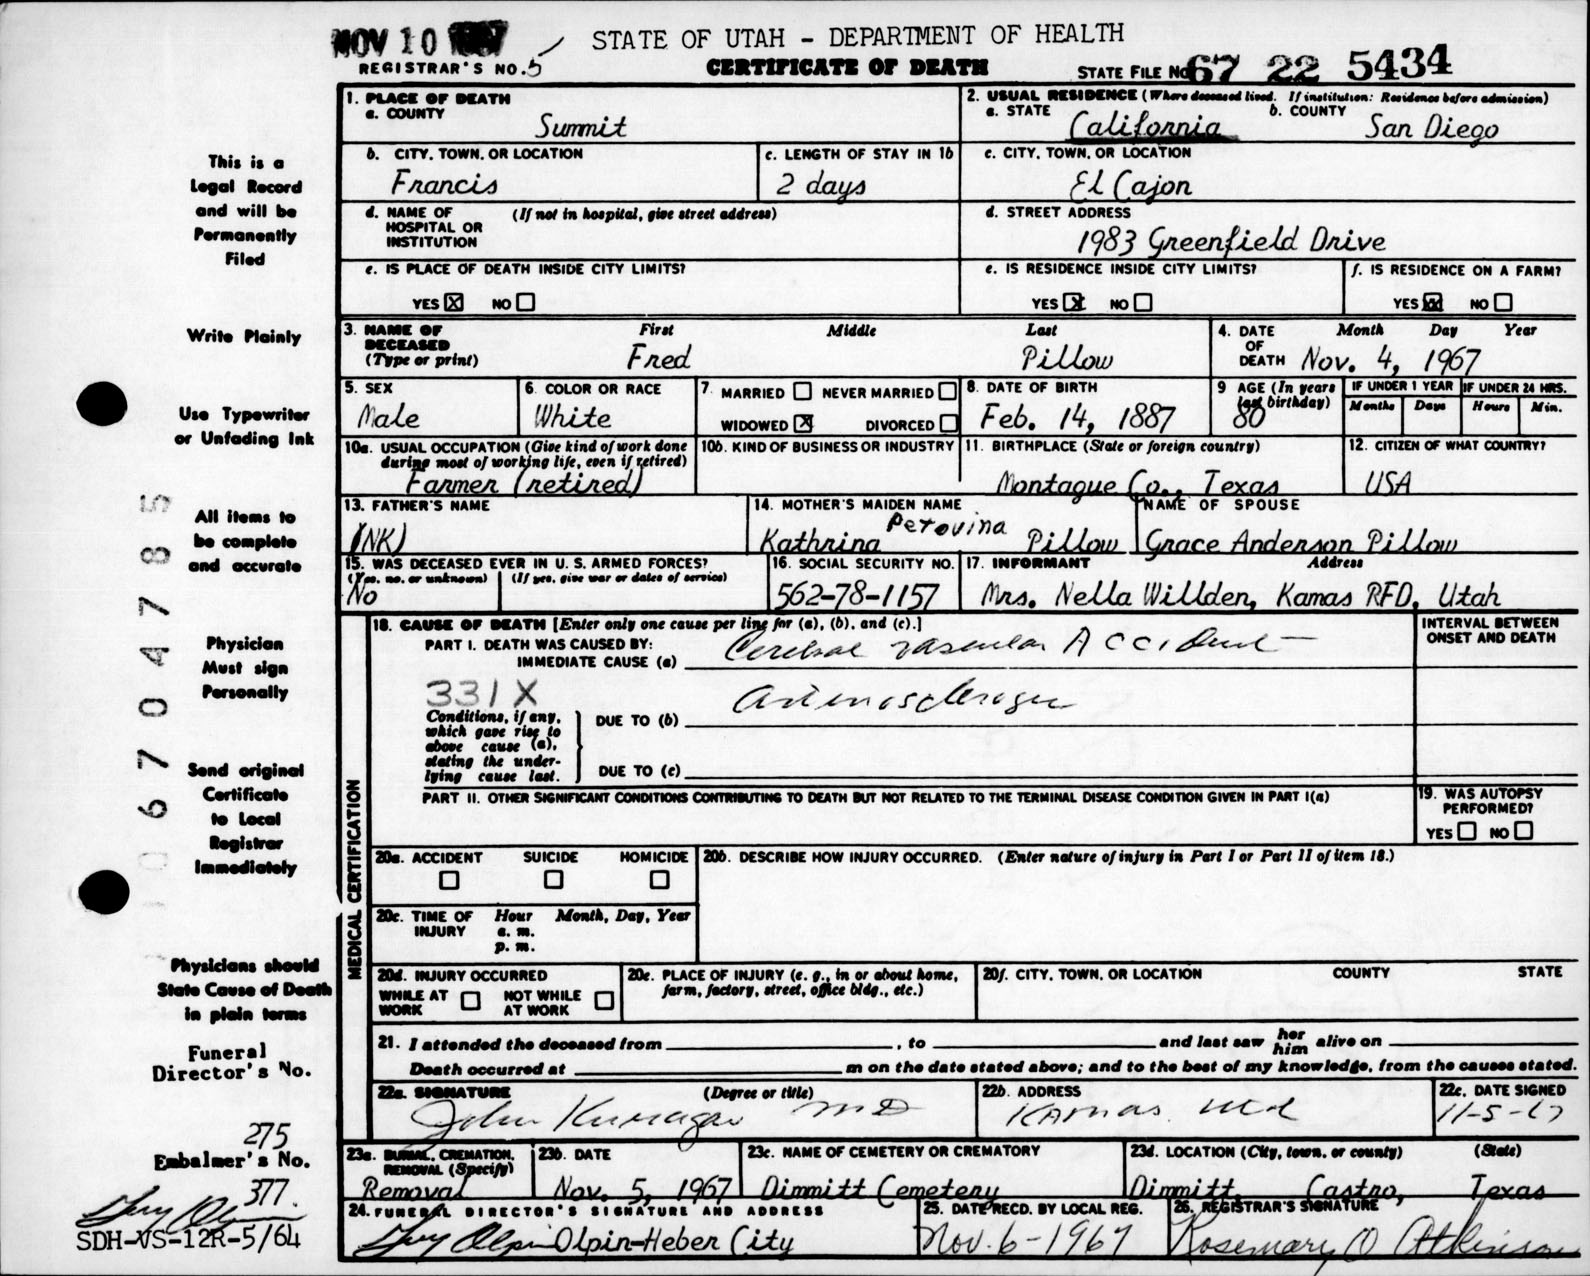 NOV 10 1967
STATE OF UTAH - DEPARTMENT OF HEALTH
REGISTRAR'S NO. 5
CERTIFICATE OF DEATH
STATE FILE No. 67 22 5434
This is a
Legal Record
and will be
Permanently
Filed
Write Plainly
Use Typewriter
or Unfading Ink
All items to
be complete
and accurate
Physician
Must sign
Personally
Send original
Certificate
to Local
Registrar
Immediately
Physicians should
State Cause of Death
in plain terms
Funeral
Director's No.
275
Embalmer's No.
377
SDH-VS-12R-5/64
06704785
1. PLACE OF DEATH
a. COUNTY
Summit
2. USUAL RESIDENCE (Where deceased lived. If institution: Residence before admission)
a. STATE
California
b. COUNTY
San Diego
b. CITY, TOWN, OR LOCATION
Francis
c. LENGTH OF STAY IN 1b
2 days
c. CITY, TOWN, OR LOCATION
El Cajon
d. NAME OF HOSPITAL OR INSTITUTION
(If not in hospital, give street address)
d. STREET ADDRESS
1983 Greenfield Drive
e. IS PLACE OF DEATH INSIDE CITY LIMITS?
YES X NO
e. IS RESIDENCE INSIDE CITY LIMITS?
YES X NO
f. IS RESIDENCE ON A FARM?
YES XX NO
3. NAME OF DECEASED (Type or print)
First Middle Last
Fred Pillow
4. DATE OF DEATH
Month Day Year
Nov. 4, 1967
5. SEX
Male
6. COLOR OR RACE
White
7. MARRIED NEVER MARRIED
WIDOWED X DIVORCED
8. DATE OF BIRTH
Feb. 14, 1887
9 AGE (In years last birthday)
80
IF UNDER 1 YEAR
Months Days
IF UNDER 24 HRS.
Hours Min.
10a. USUAL OCCUPATION (Give kind of work done
during most of working life, even if retired)
Farmer (retired)
10b. KIND OF BUSINESS OR INDUSTRY
11. BIRTHPLACE (State or foreign country)
Montague Co., Texas
12. CITIZEN OF WHAT COUNTRY?
USA
13. FATHER'S NAME
(NK)
14. MOTHER'S MAIDEN NAME
Perovina
Kathrina Pillow
NAME OF SPOUSE
Grace Anderson Pillow
15. WAS DECEASED EVER IN U. S. ARMED FORCES?
(Yes, no, or unknown) (If yes, give war or dates of service)
No
16. SOCIAL SECURITY NO.
562-78-1157
17. INFORMANT Address
Mrs. Nella Willden, Kamas RFD, Utah
MEDICAL CERTIFICATION
18. CAUSE OF DEATH [Enter only one cause per line for (a), (b), and (c).]
INTERVAL BETWEEN
ONSET AND DEATH
PART I. DEATH WAS CAUSED BY:
IMMEDIATE CAUSE (a)
Cerebral vascular Accident
331X
Conditions, if any,
which gave rise to
above cause (a),
stating the under-
lying cause last.
DUE TO (b)
DUE TO (c)
PART II. OTHER SIGNIFICANT CONDITIONS CONTRIBUTING TO DEATH BUT NOT RELATED TO THE TERMINAL DISEASE CONDITION GIVEN IN PART I(a)
19. WAS AUTOPSY
PERFORMED?
YES NO
20a. ACCIDENT SUICIDE HOMICIDE
20b. DESCRIBE HOW INJURY OCCURRED. (Enter nature of injury in Part I or Part II of item 18.)
20c. TIME OF INJURY
Hour Month, Day, Year
a. m.
p. m.
20d. INJURY OCCURRED
WHILE AT WORK
NOT WHILE AT WORK
20e. PLACE OF INJURY (e. g., in or about home,
farm, factory, street, office bldg., etc.)
20f. CITY, TOWN, OR LOCATION COUNTY STATE
21. I attended the deceased from , to and last saw her him alive on
Death occurred at m on the date stated above; and to the best of my knowledge, from the causes stated.
22a. SIGNATURE (Degree or title)
John MD
22b. ADDRESS
Kamas
22c. DATE SIGNED
11-5-67
23a. BURIAL, CREMATION,
REMOVAL (Specify)
Removal
23b. DATE
Nov. 5, 1967
23c. NAME OF CEMETERY OR CREMATORY
Dimmitt Cemetery
23d. LOCATION (City, town, or county) (State)
Dimmitt, Castro, Texas
24. FUNERAL DIRECTOR'S SIGNATURE AND ADDRESS
Olpin-Heber City
25. DATE RECD. BY LOCAL REG.
Nov. 6-1967
26. REGISTRAR'S SIGNATURE
Rosemary O Atkinson